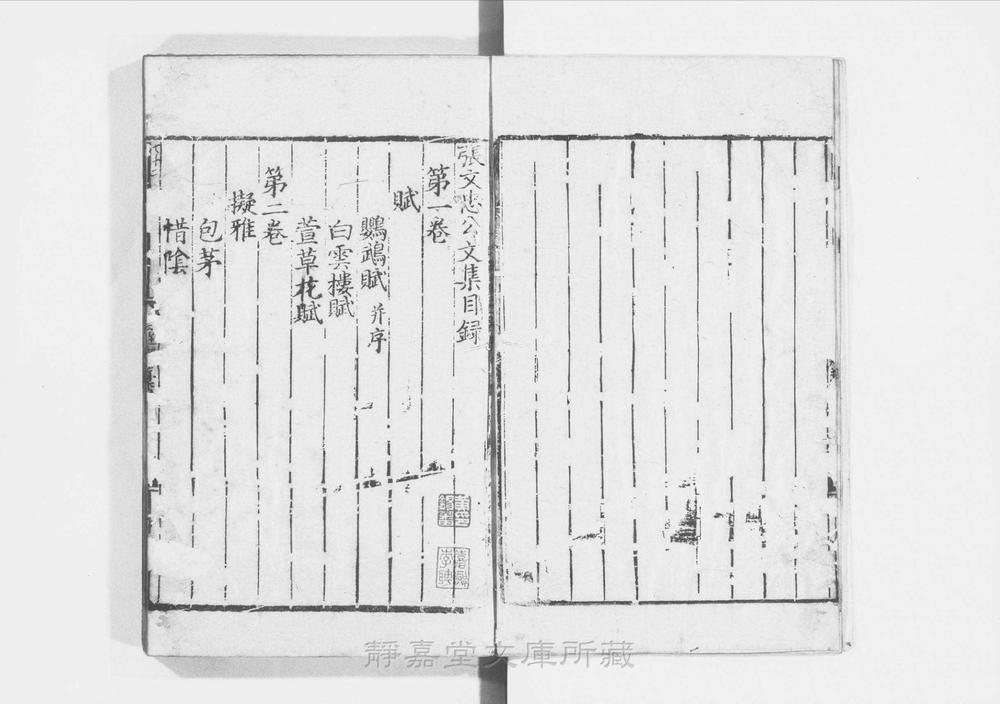 張文忠公文集目録
第一卷
賦
鸚鵡賦 并序
白雲樓賦
萱草花賦
第二卷
擬雅
包茅
惜陰
靜嘉堂文庫所藏